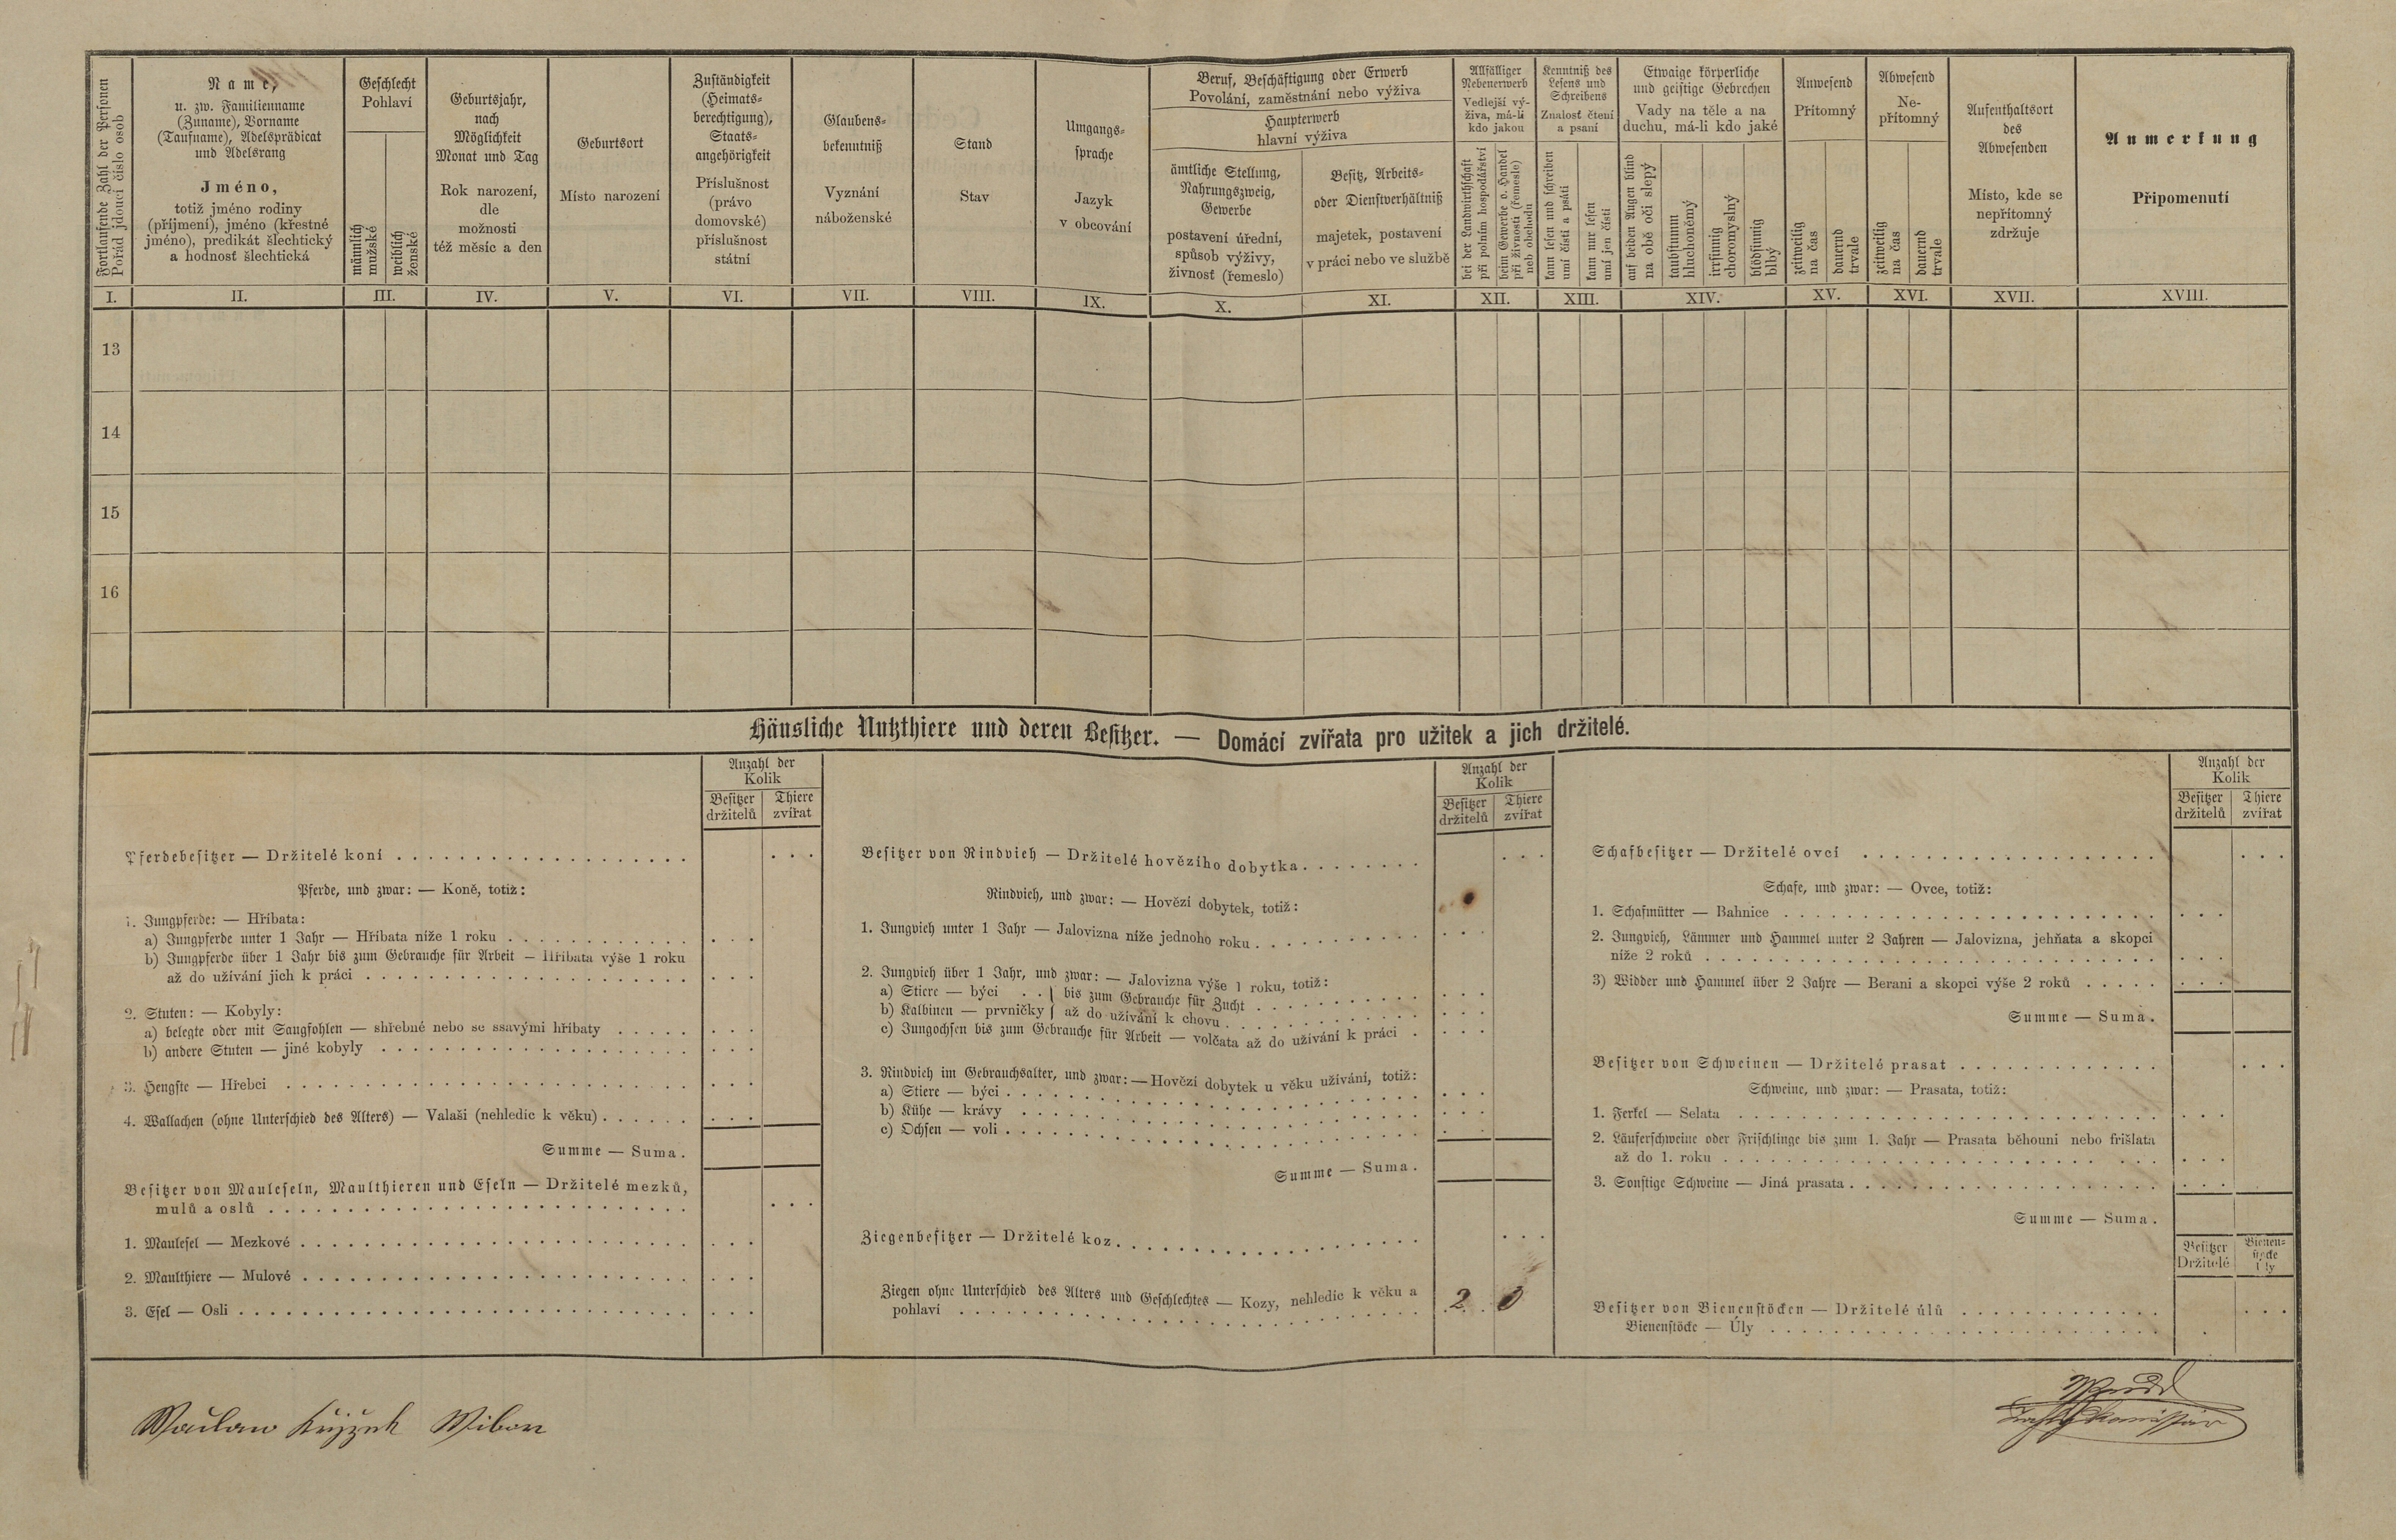 Fortlaufende Zahl der Personen
Pořad jdoucí číslo osob
Name,
u. zw. Familienname
(Zuname), Vorname
(Taufname), Adelsprädicat
und Adelsrang
Jméno,
totiž jméno rodiny
(příjmení), jméno (křestné
jméno), predikát šlechtický
a hodnosť šlechtická
Geschlecht
Pohlaví
männlich
mužské
weiblich
ženské
Geburtsjahr,
nach
Möglichkeit
Monat und Tag
Rok narození,
dle
možnosti
též měsíc a den
Geburtsort
Místo narození
Zuständigkeit
(Heimats-
berechtigung),
Staats-
angehörigkeit
Příslušnost
(právo
domovské)
příslušnost
státní
Glaubens-
bekenntniß
Vyznání
náboženské
Stand
Stav
Umgangs-
sprache
Jazyk
v obcování
Beruf, Beschäftigung oder Erwerb
Povolání, zaměstnání nebo výživa
Haupterwerb
hlavní výživa
ämtliche Stellung,
Nahrungszweig,
Gewerbe
postavení úřední,
spůsob výživy,
živnosť (řemeslo)
Besitz, Arbeits-
oder Dienstverhältniß
majetek, postavení
v práci nebo ve službě
Allfälliger
Nebenerwerb
Vedlejší vý-
živa, má-li
kdo jakou
bei der Landwirthschaft
při polním hospodářství
beim Gewerbe o. Handel
při živnosti (řemeslo)
neb obchodu
Kenntniß des
Lesens und
Schreibens
Znalosť čtení
a psaní
kann lesen und schreiben
umí čísti a psáti
kann nur lesen
umí jen čísti
Etwaige körperliche
und geistige Gebrechen
Vady na těle a na
duchu, má-li kdo jaké
auf beiden Augen blind
na obě oči slepý
taubstumm
hluchoněmý
irrsinnig
choromyslný
blödsinnig
blbý
Anwesend
Přítomný
zeitweilig
na čas
dauernd
trvale
Abwesend
Ne-
přítomný
zeitweilig
na čas
dauernd
trvale
Aufenthaltsort
des
Abwesenden
Místo, kde se
nepřítomný
zdržuje
Anmerkung
Připomenutí
I. II. III. IV. V. VI. VII. VIII. IX. X. XI. XII. XIII. XIV. XV. XVI. XVII. XVIII.
13
14
15
16
Häusliche Nutzthiere und deren Besitzer. — Domácí zvířata pro užitek a jich držitelé.
Anzahl der
Kolik
Besitzer
držitelů
Thiere
zvířat
Pferdebesitzer — Držitelé koní
Pferde, und zwar: — Koně, totiž:
1. Jungpferde: — Hříbata:
a) Jungpferde unter 1 Jahr — Hříbata níže 1 roku
b) Jungpferde über 1 Jahr bis zum Gebrauche für Arbeit — Hříbata výše 1 roku
až do užívání jich k práci
2. Stuten: — Kobyly:
a) belegte oder mit Saugfohlen — shřebné nebo se ssavými hříbaty
b) andere Stuten — jiné kobyly
3. Hengste — Hřebci
4. Wallachen (ohne Unterschied des Alters) — Valaši (nehledíc k věku)
Summe — Suma.
Besitzer von Mauleseln, Maulthieren und Eseln — Držitelé mezků,
mulů a oslů
1. Maulesel — Mezkové
2. Maulthiere — Mulové
3. Esel — Osli
Anzahl der
Kolik
Besitzer
držitelů
Thiere
zvířat
Besitzer von Rindvieh — Držitelé hovězího dobytka
Rindvieh, und zwar: — Hovězí dobytek, totiž:
1. Jungvieh unter 1 Jahr — Jalovizna níže jednoho roku
2. Jungvieh über 1 Jahr, und zwar: — Jalovizna výše 1 roku, totiž:
a) Stiere — býci . . } bis zum Gebrauche für Zucht
b) Kalbinen — prvničky } až do užívání k chovu
c) Jungochsen bis zum Gebrauche für Arbeit — volčata až do užívání k práci
3. Rindvieh im Gebrauchsalter, und zwar: — Hovězí dobytek u věku užívání, totiž:
a) Stiere — býci
b) Kühe — krávy
c) Ochsen — voli
Summe — Suma.
Ziegenbesitzer — Držitelé koz
Ziegen ohne Unterschied des Alters und Geschlechtes — Kozy, nehledíc k věku a
pohlaví 2 0
Anzahl der
Kolik
Besitzer
držitelů
Thiere
zvířat
Schafbesitzer — Držitelé ovcí
Schafe, und zwar: — Ovce, totiž:
1. Schafmütter — Bahnice
2. Jungvieh, Lämmer und Hammel unter 2 Jahren — Jalovizna, jehňata a skopci
níže 2 roků
3) Widder und Hammel über 2 Jahre — Berani a skopci výše 2 roků
Summe — Suma.
Besitzer von Schweinen — Držitelé prasat
Schweine, und zwar: — Prasata, totiž:
1. Ferkel — Selata
2. Läuferschweine oder Frischlinge bis zum 1. Jahr — Prasata běhouni nebo frišlata
až do 1. roku
3. Sonstige Schweine — Jiná prasata
Summe — Suma.
Besitzer
Držitelé
Bienen-
stöcke
Úly
Besitzer von Bienenstöcken — Držitelé úlů
Bienenstöcke — Úly